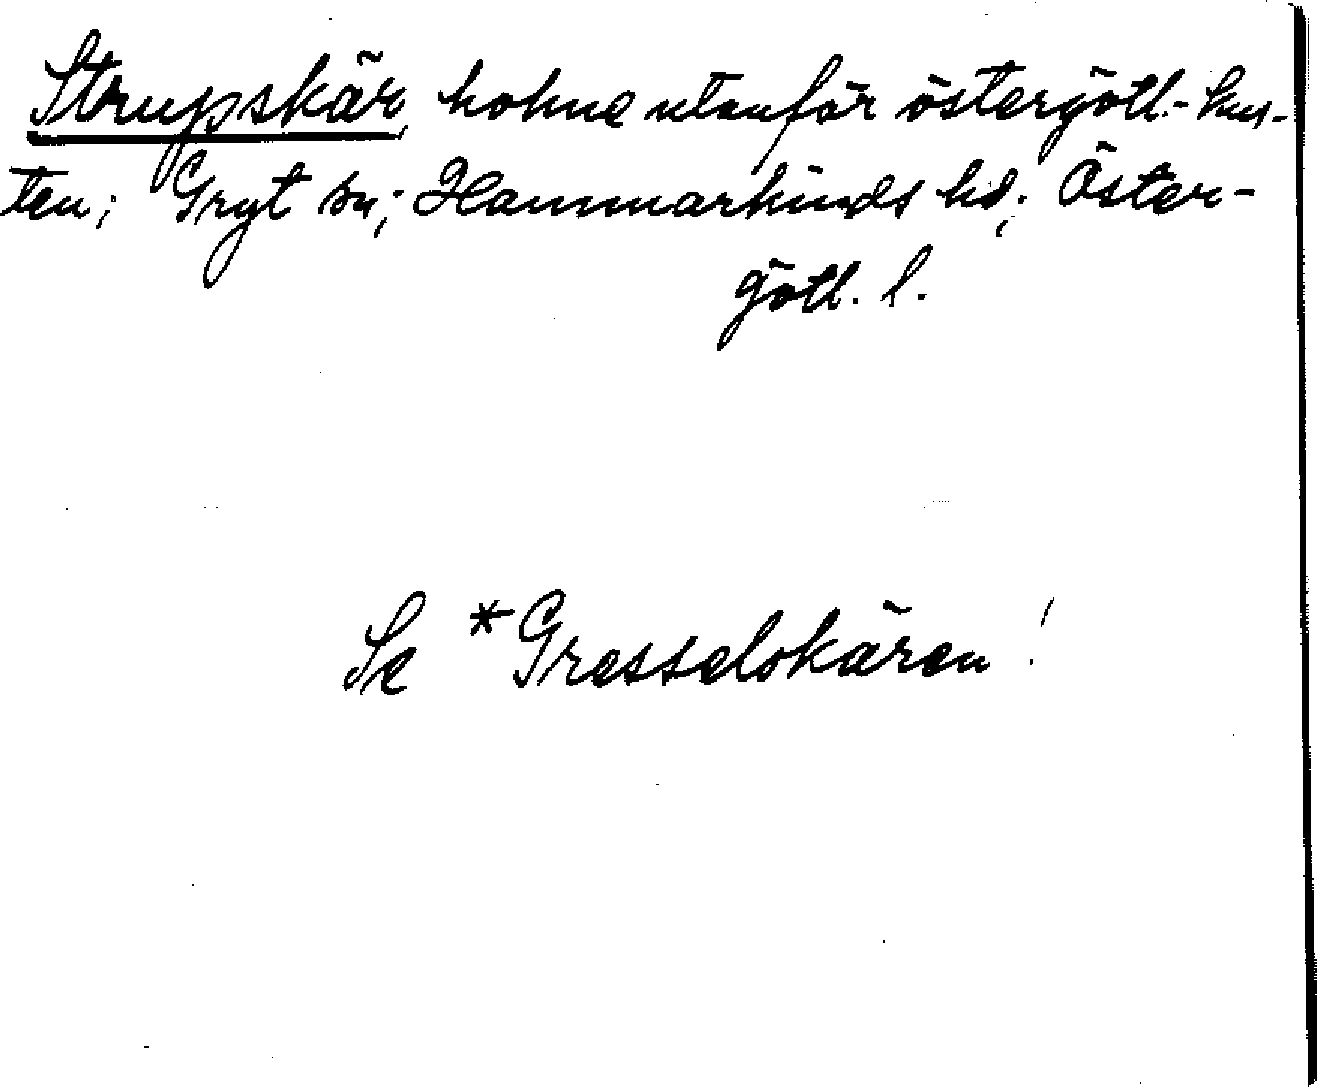 Strupskär, holme utanför östergötl.-kus-
ten; Gryt sn; Hammarkinds hd; Öster-
götl. l.
Se *Gresselskären!